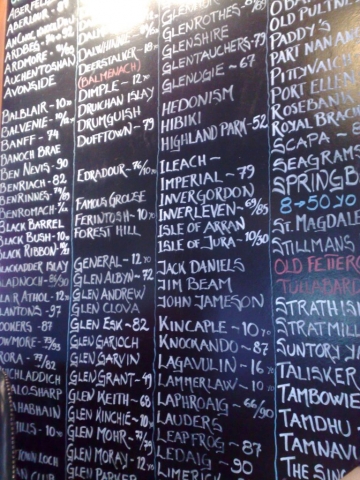 ABERFEL
ABERLOUR - 87
AN CNOC
ARDBEG - 90/93
ARDMORE - 77/93
AUCHENTOSHAN
AVONSIDE
BALBLAIR - 10 YO
BALVENIE - 10 YO
BANFF - 74
BANOCH BRAE
BEN NEVIS - 90
BENRIACH - 82
BENRINNES
BENROMACH
BLACK BARREL
BLACK BUSH - 10 YO
BLACK RIBBON
BLACKADDER ISLAY
BLADNOCH
BLAIR ATHOL - 12 YO
BLANTONS - 97
BOOKERS - 87
BOWMORE
RORA - 77/82
DALWHINNIE
DEERSTALKER - 18 YO
(BALMENACH)
DIMPLE - 12 YO
DRUICHAN ISLAY
DRUMGUISH
DUFFTOWN - 79
EDRADOUR - 76/10 YO
FAMOUS GROUSE
FERINTOSH - 10 YO
FOREST HILL
GENERAL - 12 YO
GLEN ALBYN - 72
GLEN ANDREW
GLEN CLOVA
GLEN ESK - 82
GLEN GARIOCH
GLEN GARVIN
GLEN GRANT - 49
GLEN KEITH - 68
GLEN KINCHIE - 10 YO
GLEN MOHR - 77/79
GLEN MORAY - 12 YO
GLEN PARKER
GLENROTHES - 89
GLENSHIRE
GLENTAUCHERS - 79
GLENUGIE - 67
HEDONISM
HIBIKI
HIGHLAND PARK - 52
ILEACH -
IMPERIAL - 79
INVERGORDON
INVERLEVEN - 69/85
ISLE OF ARRAN
ISLE OF JURA - 10/30
JACK DANIELS
JIM BEAM
JOHN JAMESON
KINCAPLE - 10 YO
KNOCKANDO - 87
LAGAVULIN - 16 YO
LAMMERLAW - 10 YO
LAPHROAIG - 66/90
LAUDERS
LEAPFROG - 87
LEDAIG - 90
LIMERICK
OLD PULTNE
PADDY'S
PART NAN ANG
PITTYVAICH
PORT ELLEN
ROSEBANK
ROYAL BRAC
SCAPA -
SEAGRAMS
SPRINGB
8 → 50 YO
ST. MAGDAL
STILLMANS
OLD FETTERC
TULLABARD
STRATHIS
STRATHMILL
SUNTORY
TALISKER
TAMBOWIE
TAMDHU -
TAMNAVU
THE SING